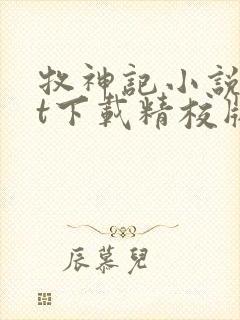 牧神記小說
t下載精校版
辰慕兒